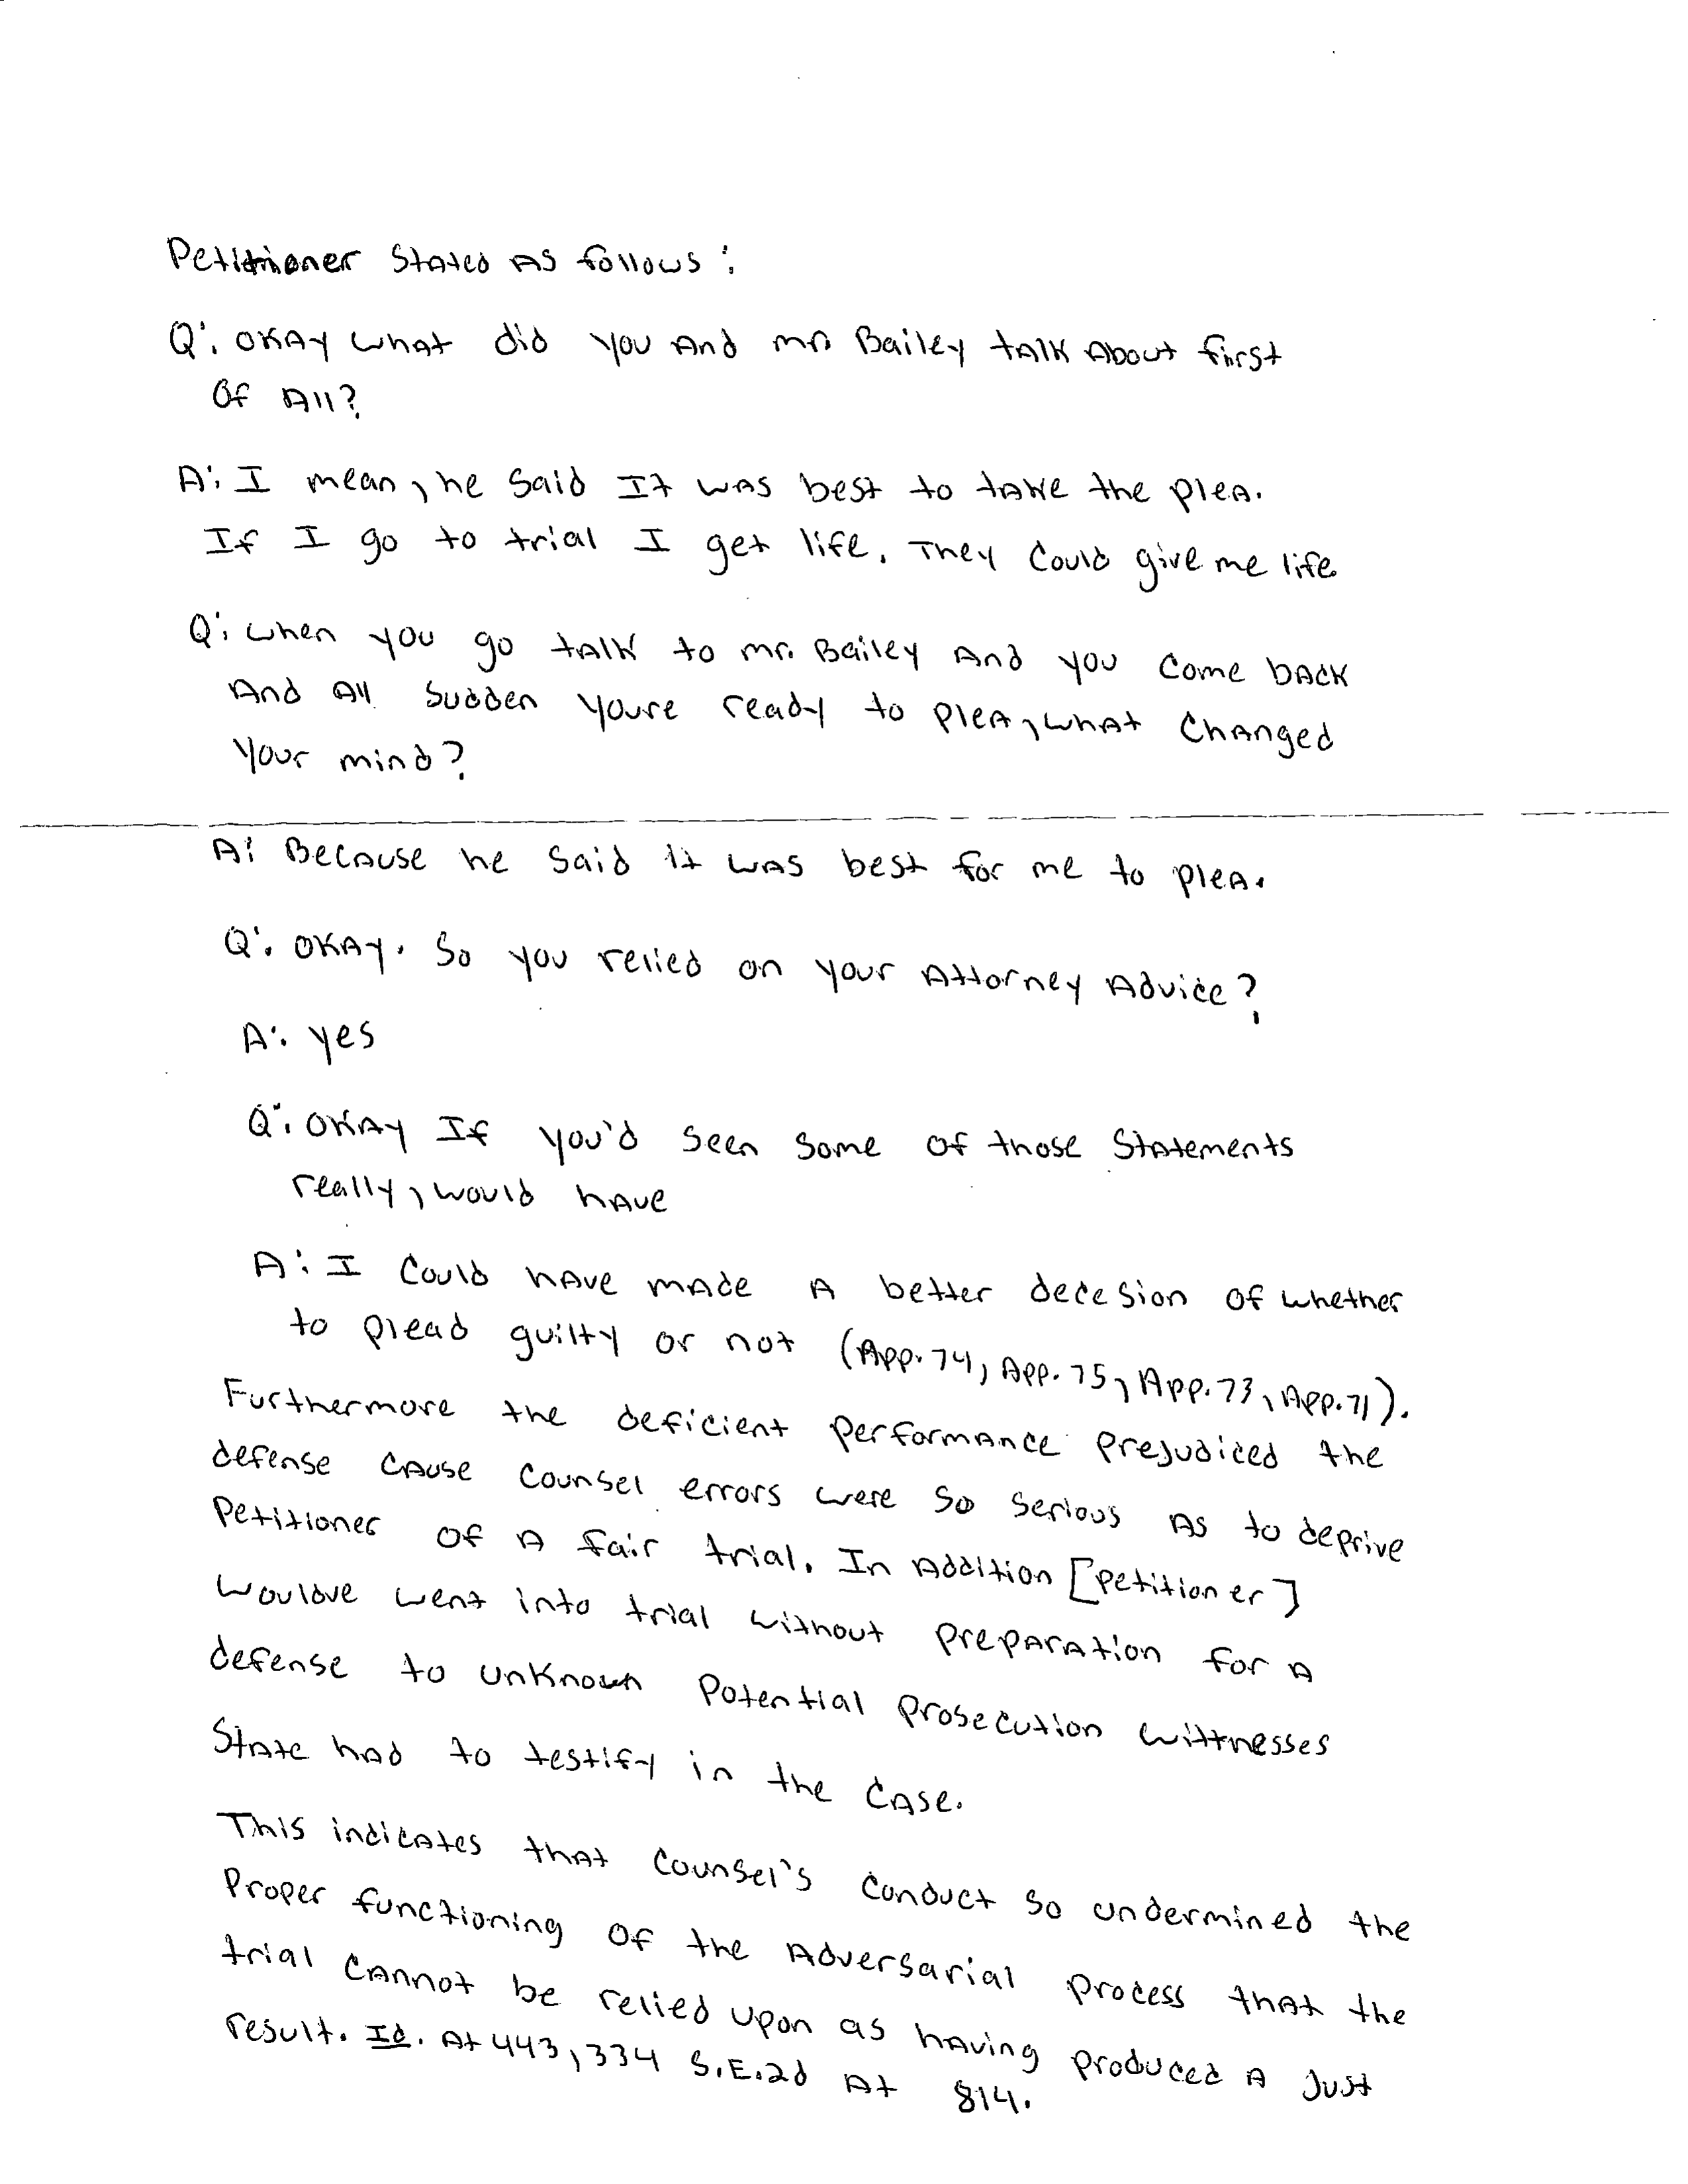 Petitioner Stated As follows:
Q: OKAY what did you And mr. Bailey tAlK About first
Of All?
A: I mean, he Said It wAs best to tAKe the pleA.
If I go to trial I get life. They Could give me life
Q: when you go tAlK to mr. Bailey And you Come bACK
And All Sudden youre ready to pleA, whAt ChAnged
your mind?
A: BecAuse he Said It wAs best for me to pleA.
Q: OKAy. So you relied on your Attorney Advice?
A: yes
Q: OKAy If you'd Seen Some of those StAtements
really, would hAve
A: I Could hAve mAde A better decesion of whether
to plead guilty or not (App. 74, App. 75, App. 73, App. 71).
Furthermore the deficient performAnce prejudiced the
defense CAuse Counsel errors were so Serious As to deprive
Petitioner of A fair trial. In Addition [petitioner]
Wouldve went into trial without prepArAtion for A
defense to unKnown Potential Prosecution wittnesses
StAte hAd to testify in the CAse.
This indicAtes thAt Counsel's Conduct So undermined the
Proper functioning of the Adversarial process thAt the
trial CAnnot be relied upon as hAving produced A Just
result. Id. At 443, 334 S.E.2d At 814.